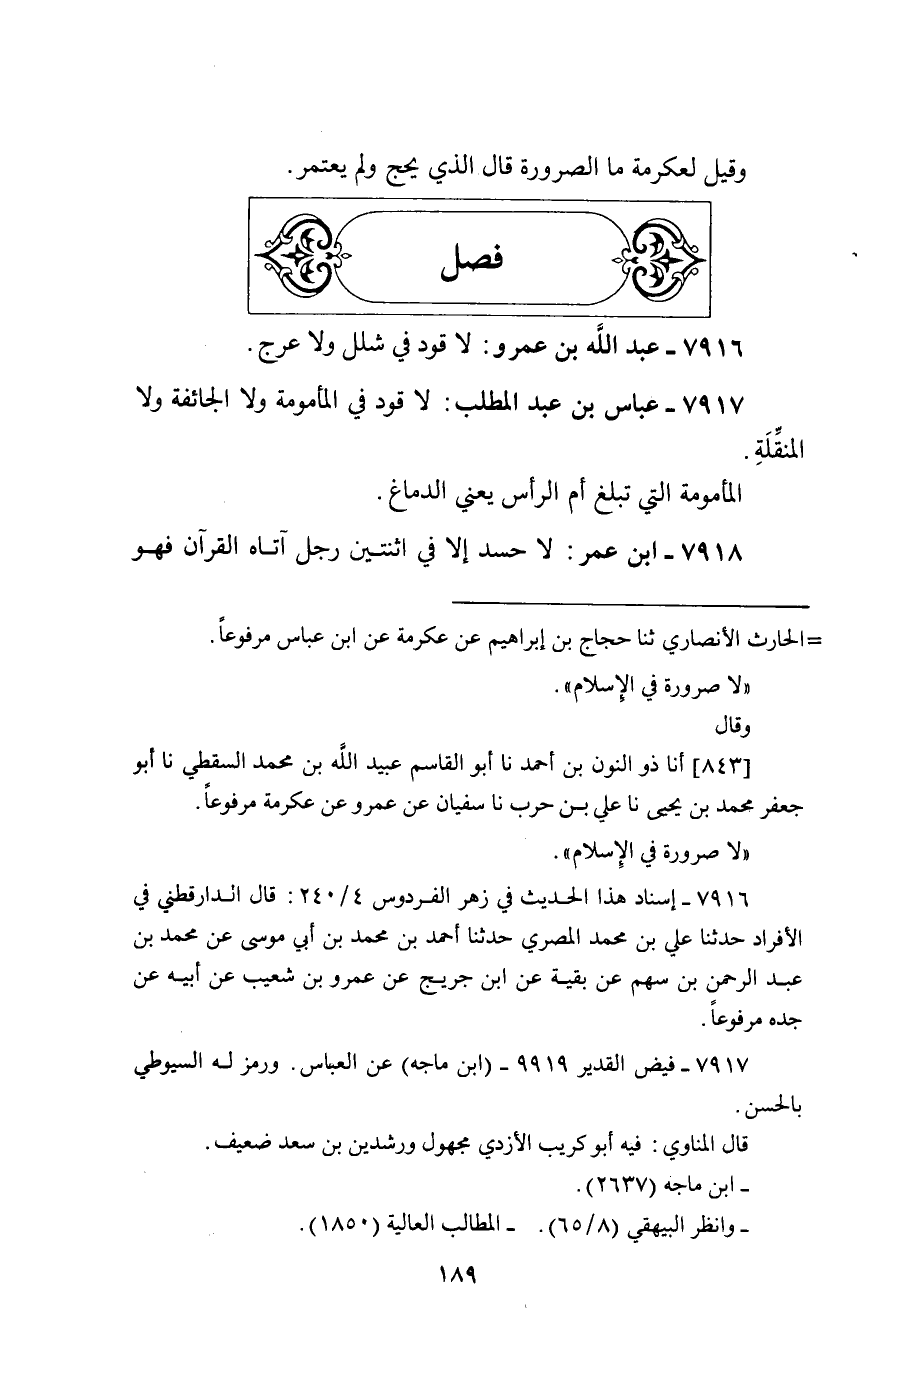 وقيل لعكرمة ما الصرورة قال الذي يحج ولم يعتمر.
فصل
٧٩١٦ ـ عبد اللَّه بن عمرو: لا قود في شلل ولا عرج.
٧٩١٧ ـ عباس بن عبد المطلب: لا قود في المأمومة ولا الجائفة ولا
المنقِّلَةِ.
المأمومة التي تبلغ أم الرأس يعني الدماغ.
٧٩١٨ ـ ابن عمر: لا حسد إلا في اثنتين رجل آتاه القرآن فهو
=الحارث الأنصاري ثنا حجاج بن إبراهيم عن عكرمة عن ابن عباس مرفوعاً.
«لا صرورة في الإسلام».
وقال
[٨٤٣] أنا ذو النون بن أحمد نا أبو القاسم عبيد اللَّه بن محمد السقطي نا أبو
جعفر محمد بن يحيى نا علي بن حرب نا سفيان عن عمرو عن عكرمة مرفوعاً.
«لا صرورة في الإسلام».
٧٩١٦ ـ إسناد هذا الحديث في زهر الفردوس ٢٤٠/٤: قال الدارقطني في
الأفراد حدثنا علي بن محمد المصري حدثنا أحمد بن محمد بن أبي موسى عن محمد بن
عبد الرحمن بن سهم عن بقية عن ابن جريج عن عمرو بن شعيب عن أبيه عن
جده مرفوعاً.
٧٩١٧ ـ فيض القدير ٩٩١٩ ـ (ابن ماجه) عن العباس. ورمز له السيوطي
بالحسن.
قال المناوي: فيه أبو كريب الأزدي مجهول ورشدين بن سعد ضعيف.
ـ ابن ماجه (٢٦٣٧).
ـ وانظر البيهقي (٦٥/٨). ـ المطالب العالية (١٨٥٠).
١٨٩